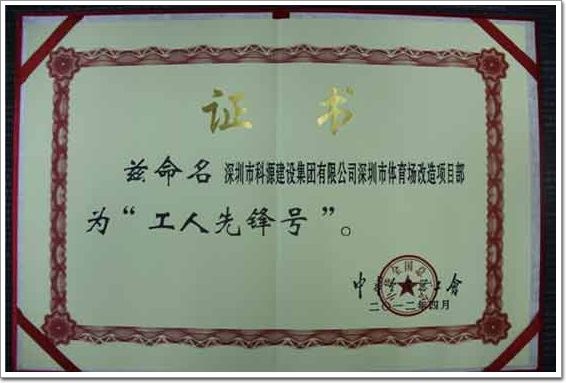 证书
兹命名 深圳市科源建设集团有限公司深圳市体育场改造项目部
为“工人先锋号”。
二〇一二年四月